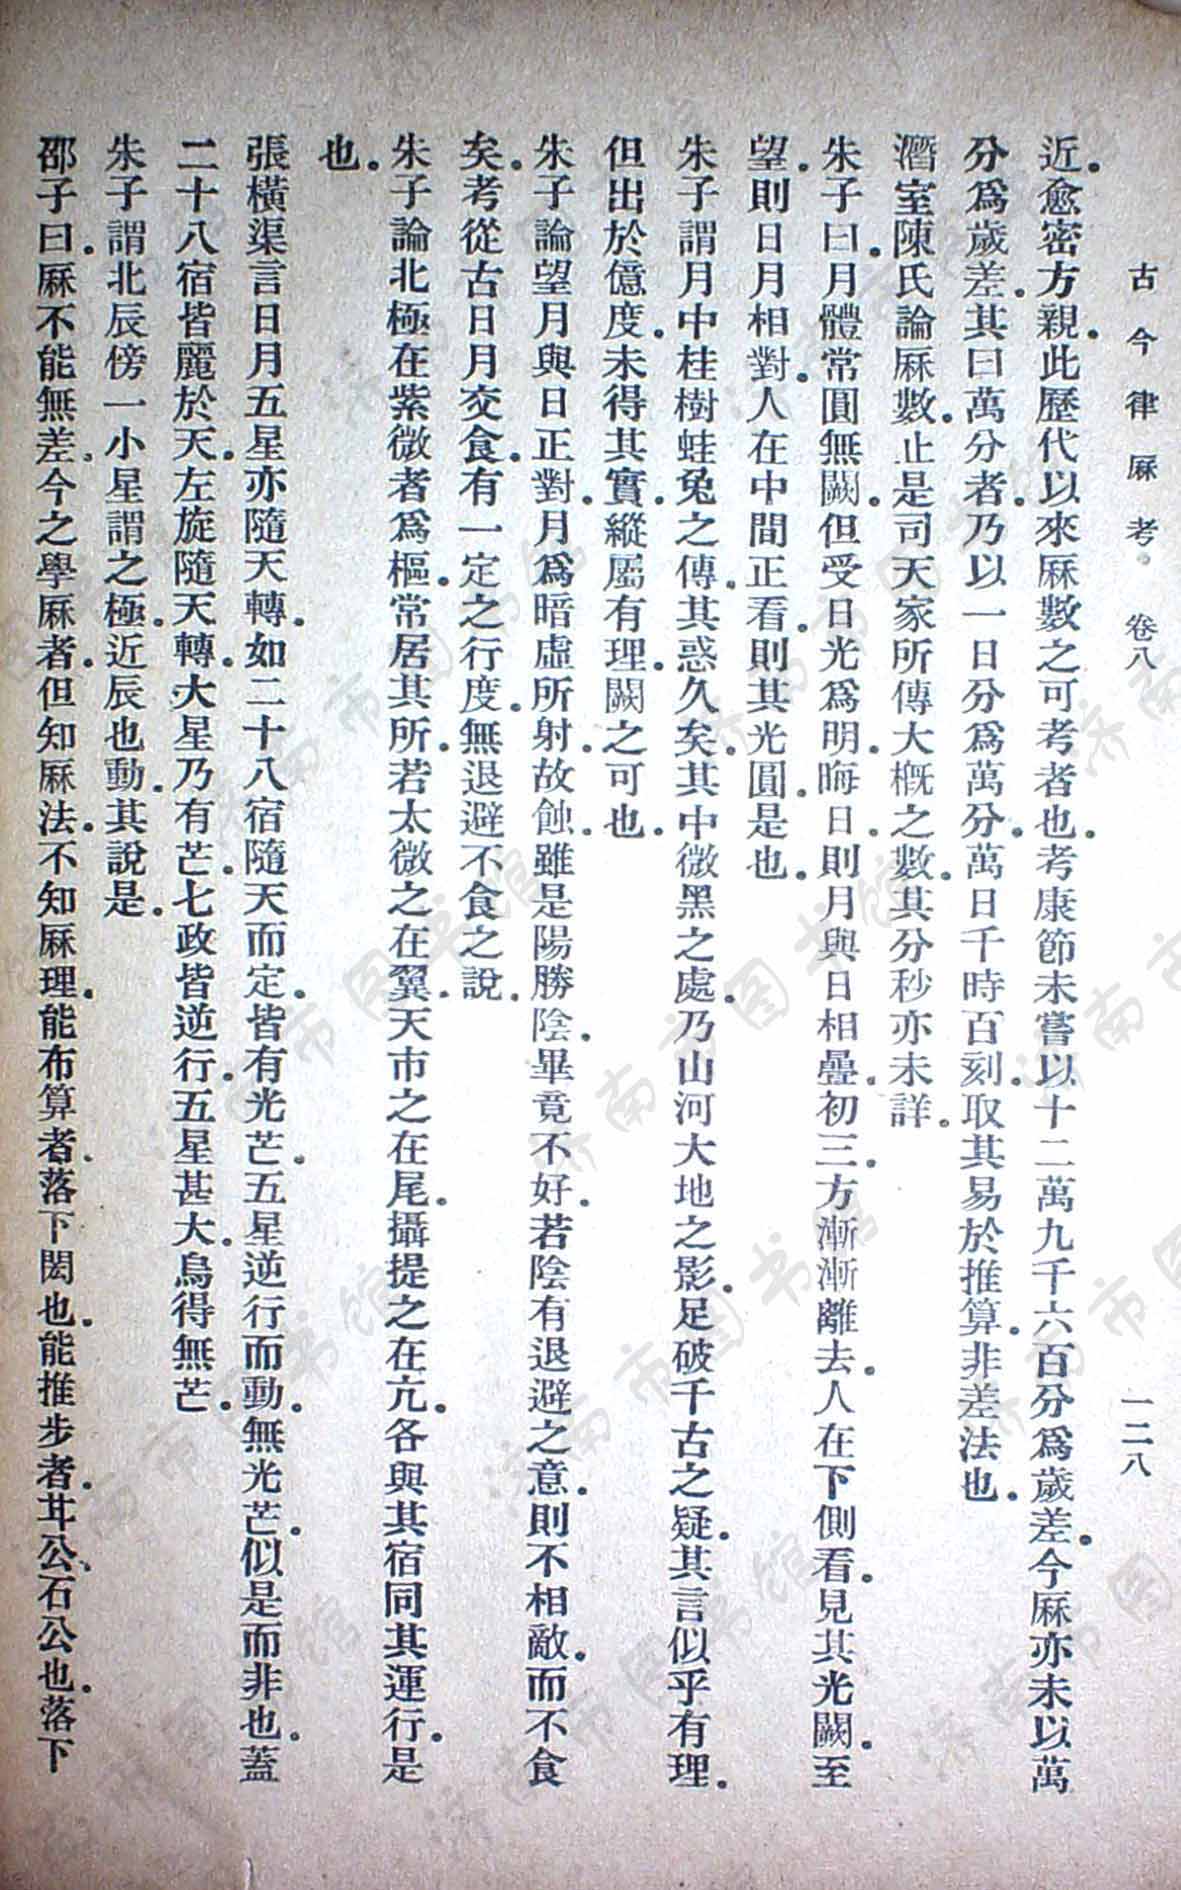 古今律厤考 卷八 一二八
近愈密方親此歷代以來厤數之可考者也考康節未嘗以十二萬九千六百分爲歲差今厤亦未以萬
分爲歲差其曰萬分者乃以一日分爲萬分萬日千時百刻取其易於推算非差法也
潛室陳氏論厤數止是司天家所傳大概之數其分秒亦未詳
朱子曰月體常圓無闕但受日光爲明晦日則月與日相疊初三方漸漸離去人在下側看見其光闕至
望則日月相對人在中間正看則其光圓是也
朱子謂月中桂樹蛙兔之傳其惑久矣其中微黑之處乃山河大地之影足破千古之疑其言似乎有理
但出於億度未得其實縱屬有理闕之可也
朱子論望月與日正對月爲暗虛所射故蝕雖是陽勝陰畢竟不好若陰有退避之意則不相敵而不食
矣考從古日月交食有一定之行度無退避不食之說
朱子論北極在紫微者爲樞常居其所若太微之在翼天市之在尾攝提之在亢各與其宿同其運行是
也
張橫渠言日月五星亦隨天轉如二十八宿隨天而定皆有光芒五星逆行而動無光芒似是而非也蓋
二十八宿皆麗於天左旋隨天轉大星乃有芒七政皆逆行五星甚大烏得無芒
朱子謂北辰傍一小星謂之極近辰也動其說是
邵子曰厤不能無差今之學厤者但知厤法不知厤理能布算者落下閎也能推步者甘公石公也落下